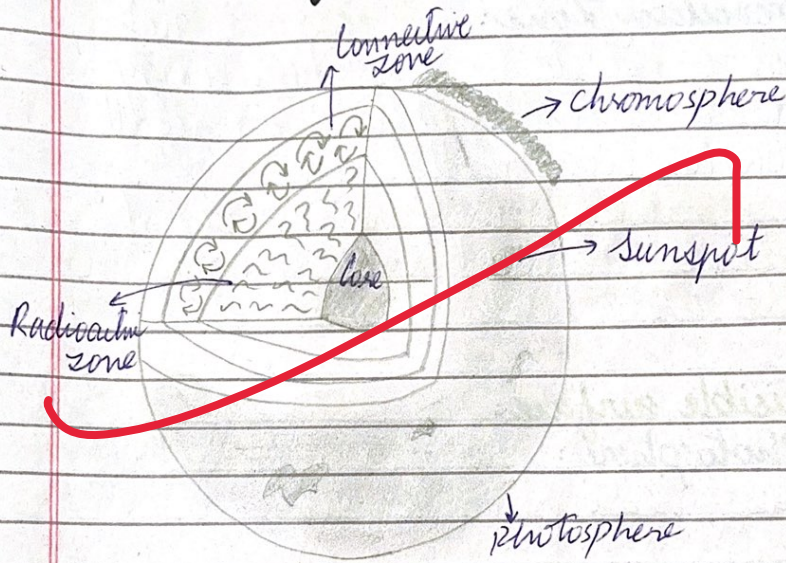 Connective
zone
Chromosphere
Sunspot
Core
Radioactive
zone
Photosphere